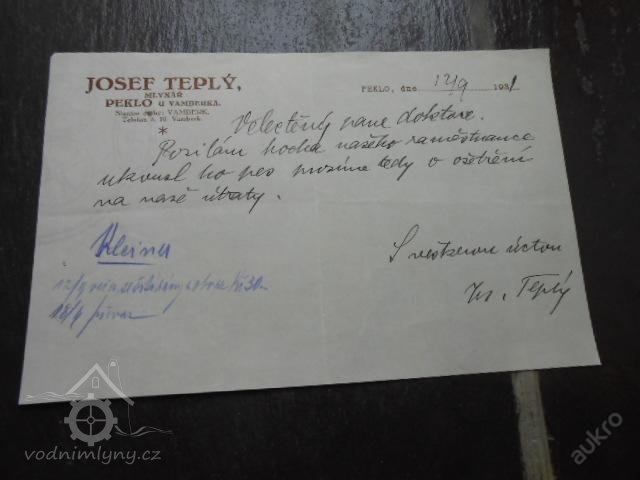 JOSEF TEPLÝ,
MLYNÁŘ
PEKLO U VAMBERKA.
Stanice dráhy: VAMBERK.
Telefon č. 10. Vamberk.
PEKLO, dne 12/9 1931
Velectěný pane doktore.
Posílám hocha našeho zaměstnance
ukousl ho pes prosíme tedy o ošetření
na naše útraty.
S veškerou úctou
Jos. Teplý
Kleiner
12/9
15/9
vodnimlyny.cz
aukro